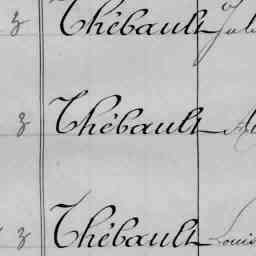 3 Thébault Jul
3 Thébault
3 Thébault Louis